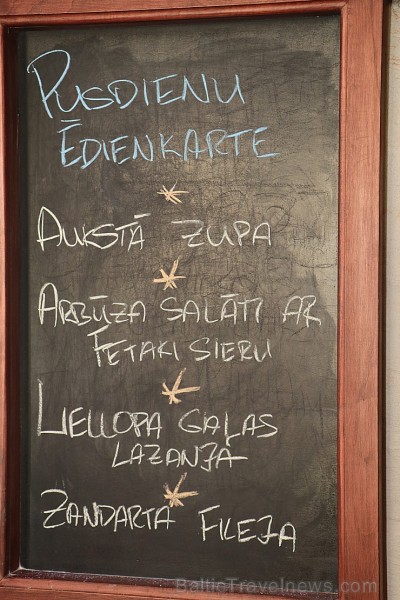 PUSDIENU
ĒDIENKARTE
AUKSTĀ ZUPA
ARBŪZA SALĀTI AR
FETAKI SIERU
LIELLOPA GAĻAS
LAZANJA
ZANDARTA FILEJA
BalticTravelnews.com